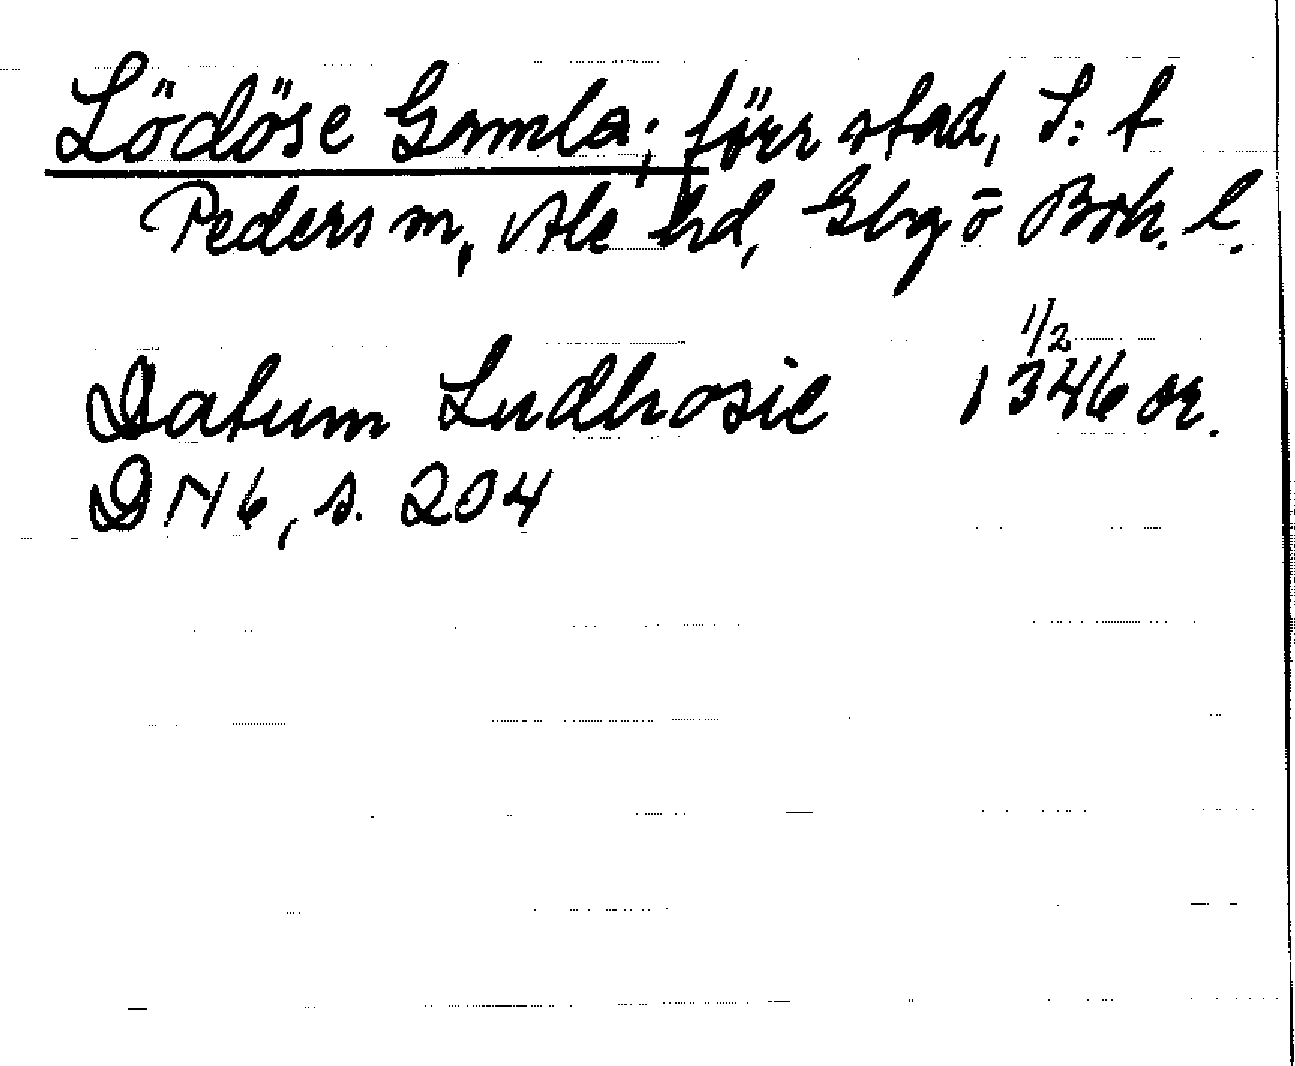 Lödöse Gamla; förr stad, S:t
Peders sn, Ale hd, Gbg o Boh. l.
Datum Ludhosie 1346 1/2 or.
DN 6, s. 204